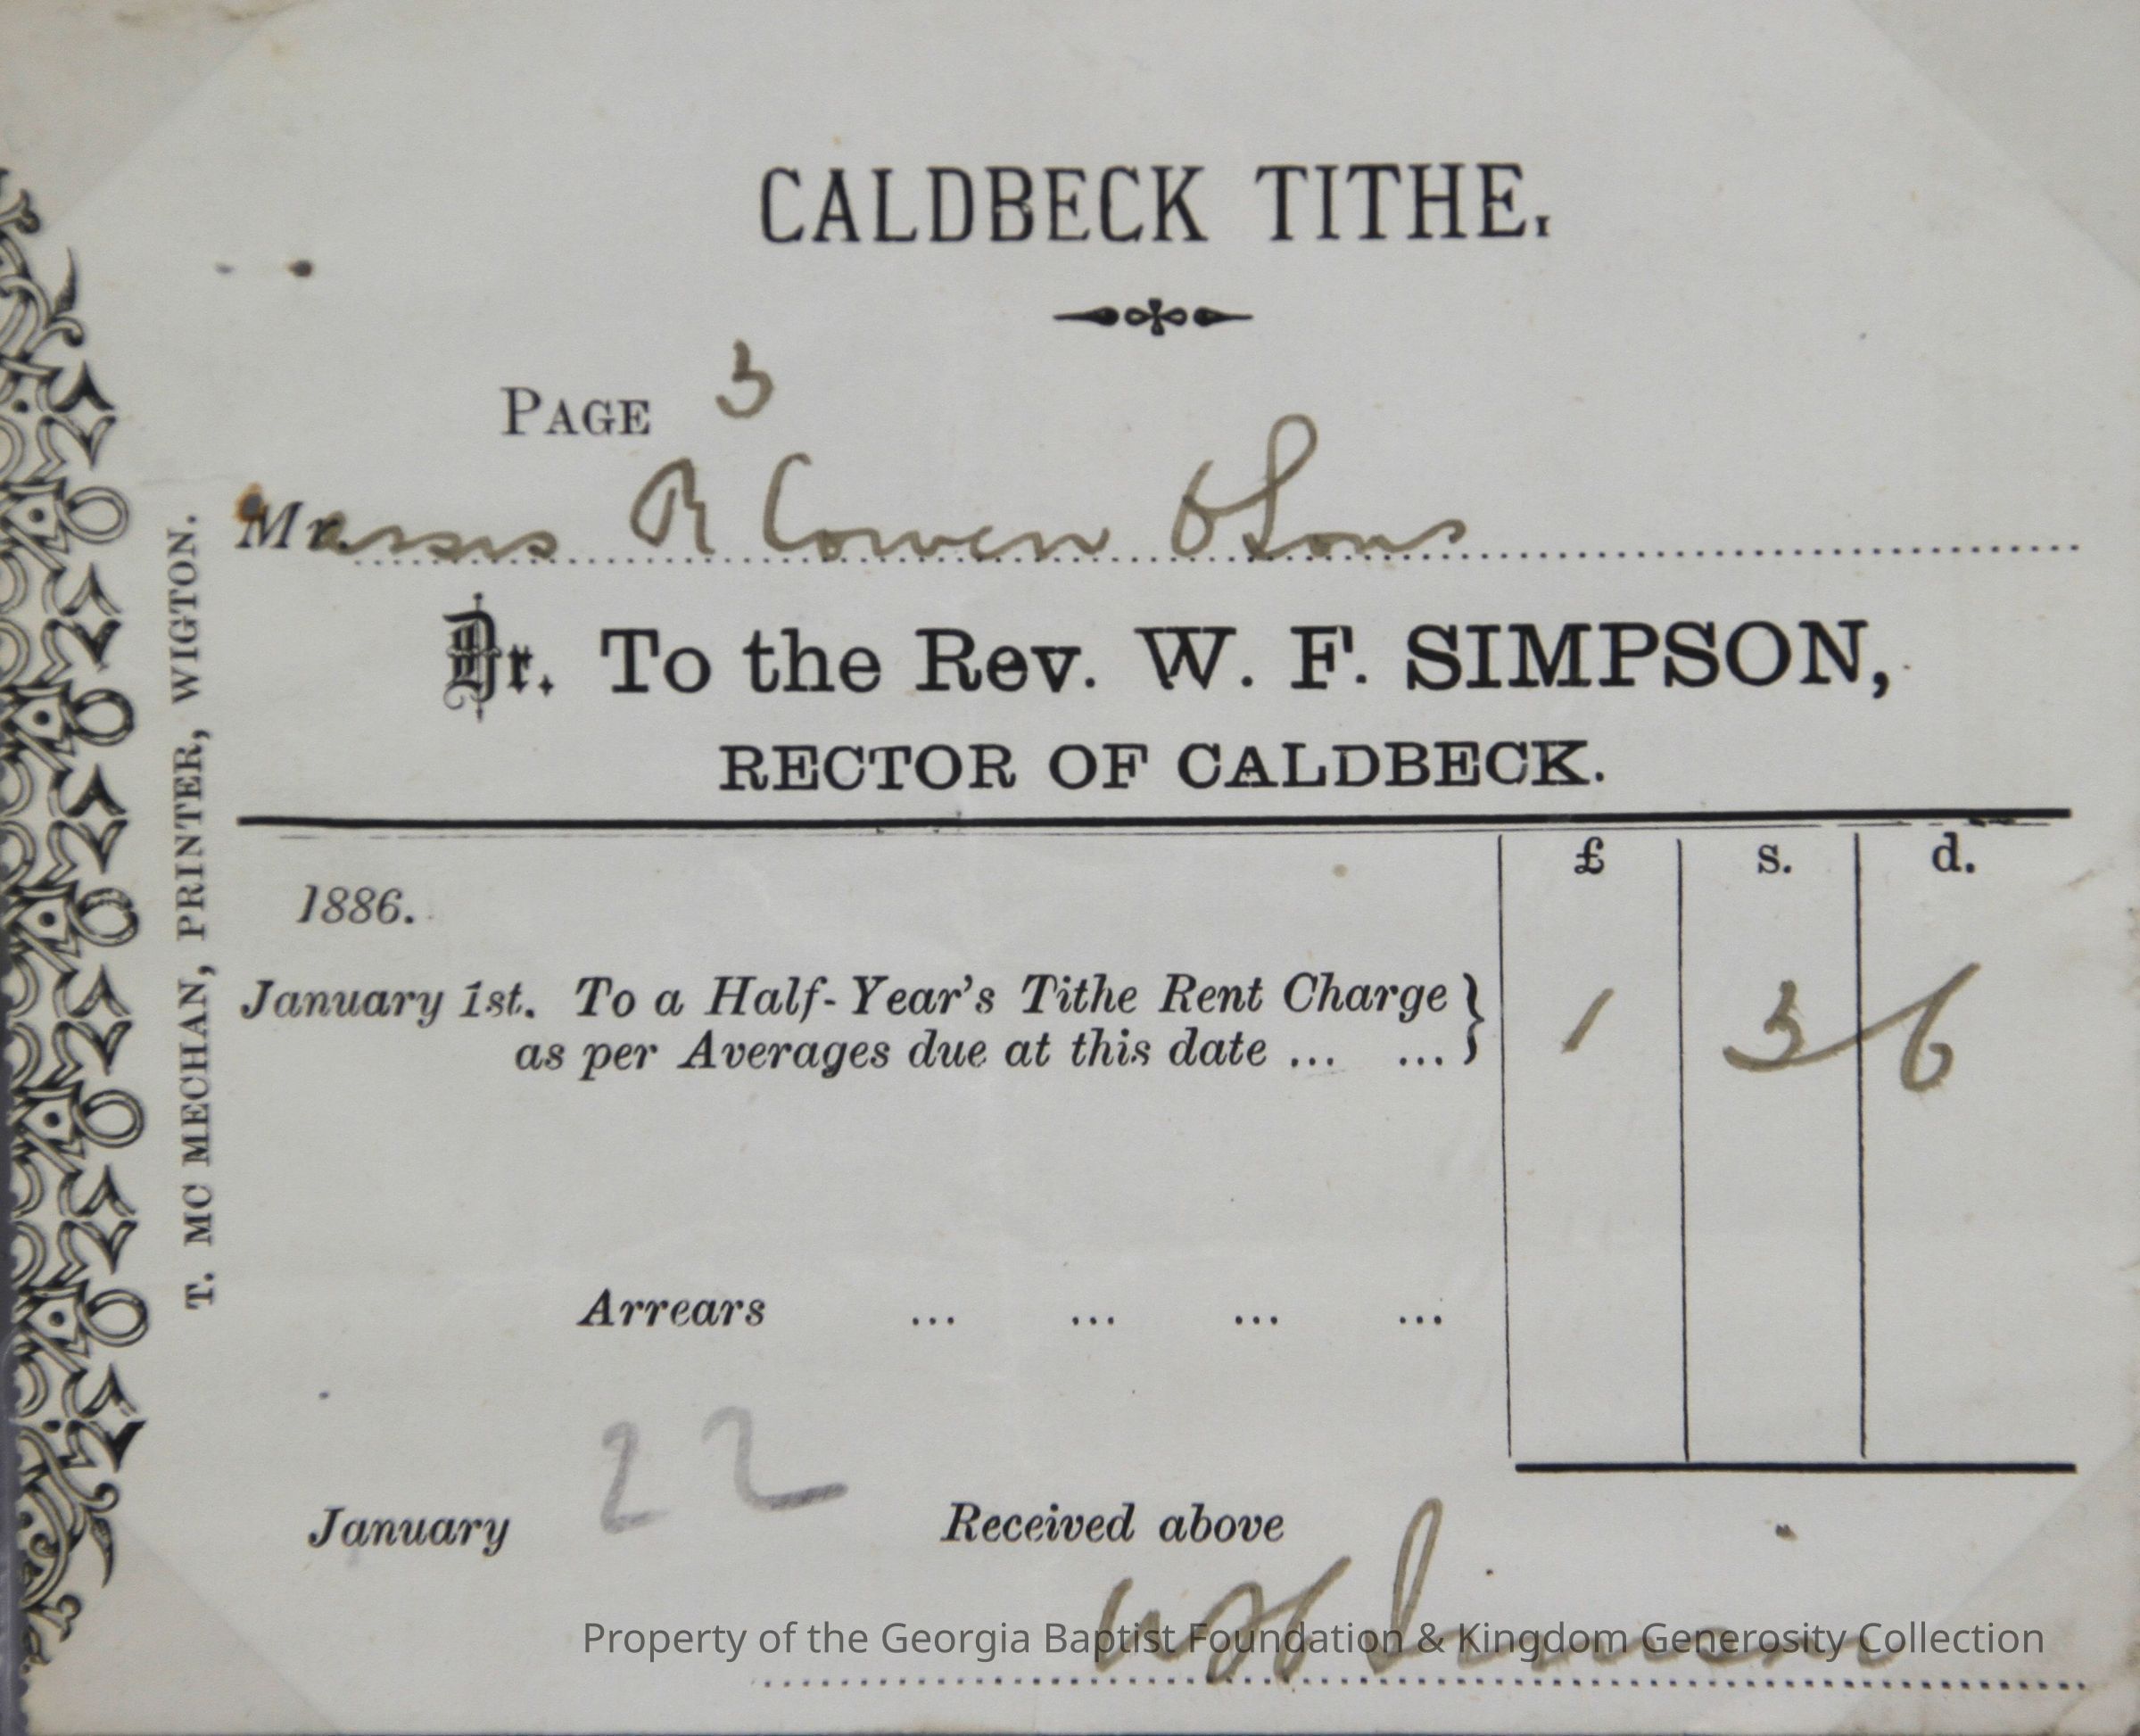 CALDBECK TITHE.
PAGE 3
Mr. essrs R Cowen & Sons
Dr. To the Rev. W. F. SIMPSON,
RECTOR OF CALDBECK.
£ s. d.
1886.
January 1st. To a Half-Year's Tithe Rent Charge } 1 3 6
as per Averages due at this date ... ...
Arrears ... ... ... ...
January 22 Received above
Property of the Georgia Baptist Foundation & Kingdom Generosity Collection
T. MC MECHAN, PRINTER, WIGTON.